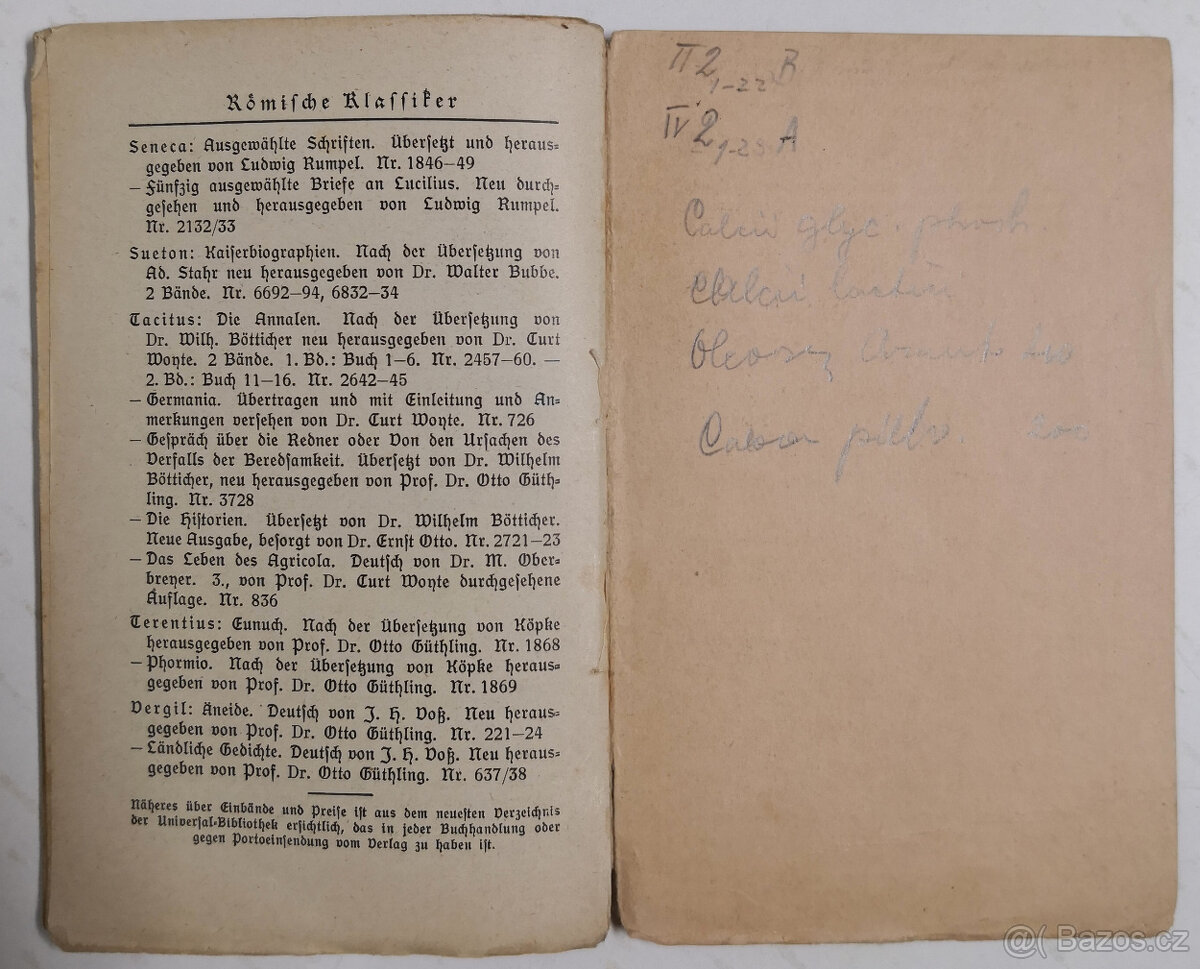 Römische Klassiker
Seneca: Ausgewählte Schriften. Übersetzt und heraus-
gegeben von Ludwig Rumpel. Nr. 1846–49
— Fünfzig ausgewählte Briefe an Lucilius. Neu durch-
gesehen und herausgegeben von Ludwig Rumpel.
Nr. 2132/33
Sueton: Kaiserbiographien. Nach der Übersetzung von
Ad. Stahr neu herausgegeben von Dr. Walter Bubbe.
2 Bände. Nr. 6692–94, 6832–34
Tacitus: Die Annalen. Nach der Übersetzung von
Dr. Wilh. Bötticher neu herausgegeben von Dr. Curt
Woyte. 2 Bände. 1. Bd.: Buch 1–6. Nr. 2457–60. —
2. Bd.: Buch 11–16. Nr. 2642–45
— Germania. Übertragen und mit Einleitung und An-
merkungen versehen von Dr. Curt Woyte. Nr. 726
— Gespräch über die Redner oder Von den Ursachen des
Verfalls der Beredsamkeit. Übersetzt von Dr. Wilhelm
Bötticher, neu herausgegeben von Prof. Dr. Otto Güth-
ling. Nr. 3728
— Die Historien. Übersetzt von Dr. Wilhelm Bötticher.
Neue Ausgabe, besorgt von Dr. Ernst Otto. Nr. 2721–23
— Das Leben des Agricola. Deutsch von Dr. M. Ober-
breyer. 3., von Prof. Dr. Curt Woyte durchgesehene
Auflage. Nr. 836
Terentius: Eunuch. Nach der Übersetzung von Köpke
herausgegeben von Prof. Dr. Otto Güthling. Nr. 1868
— Phormio. Nach der Übersetzung von Köpke heraus-
gegeben von Prof. Dr. Otto Güthling. Nr. 1869
Vergil: Äneide. Deutsch von J. H. Voß. Neu heraus-
gegeben von Prof. Dr. Otto Güthling. Nr. 221–24
— Ländliche Gedichte. Deutsch von J. H. Voß. Neu heraus-
gegeben von Prof. Dr. Otto Güthling. Nr. 637/38
Näheres über Einbände und Preise ist aus dem neuesten Verzeichnis
der Universal-Bibliothek ersichtlich, das in jeder Buchhandlung oder
gegen Portoeinsendung vom Verlag zu haben ist.
II 2 1-22 B
IV 2 A
Calcii glyc. phosh.
lactici
200
pulv. 200
Bazos.cz